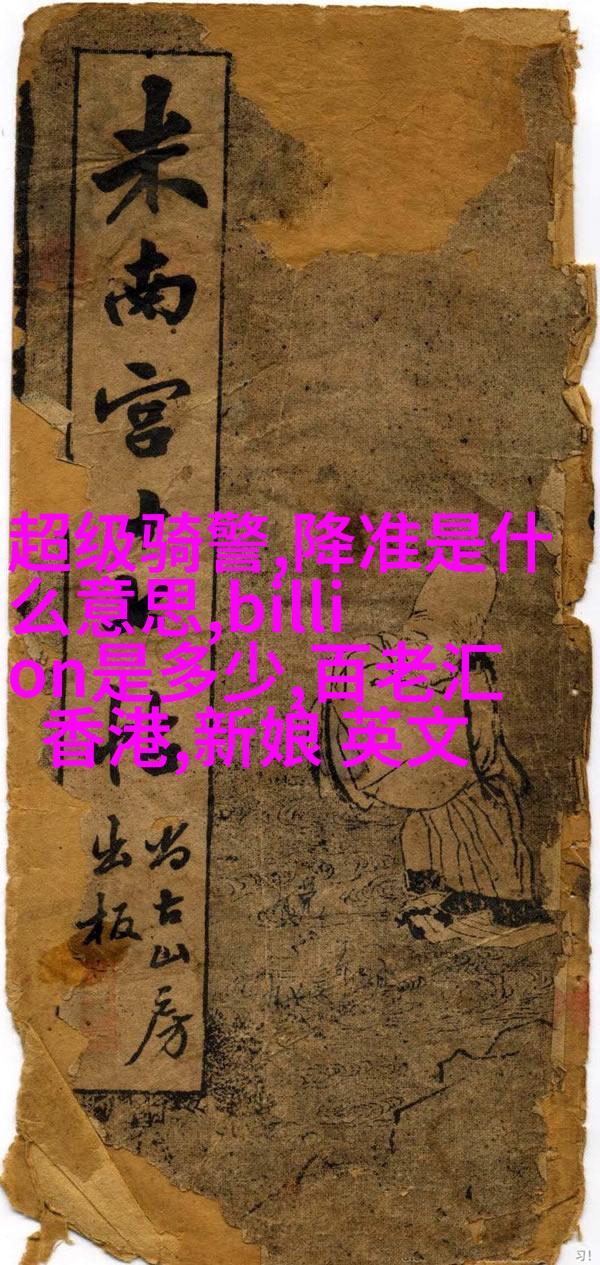 米南宫
尚古山房
出板
超级骑警,降准是什
么意思,billi
on是多少,百老汇
香港,新娘 英文
习!